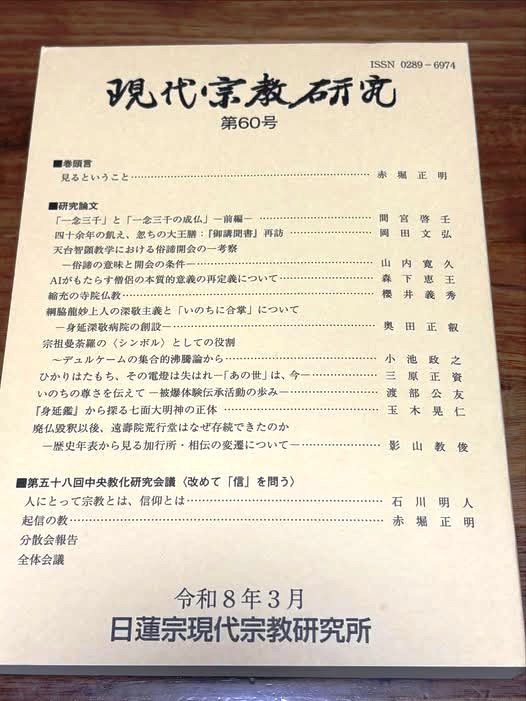 ISSN 0289-6974
現代宗教研究
第60号
■巻頭言
見るということ…………………………………………… 赤堀正明
■研究論文
「一念三千」と「一念三千の成仏」―前編― …………………… 間宮啓壬
四十余年の飢え、忽ちの大王膳:『御講聞書』再訪 …………………… 岡田文弘
天台智顗教学における俗諦開会の一考察
―俗諦の意味と開会の条件―…………………………………… 山内寛久
AIがもたらす僧侶の本質的意義の再定義について…………………… 森下恵王
縮充の寺院仏教…………………………………………… 櫻井義秀
綱脇龍妙上人の深敬主義と「いのちに合掌」について
―身延深敬病院の創設―…………………………………… 奥田正叡
宗祖曼荼羅の〈シンボル〉としての役割
~デュルケームの集合的沸騰論から~…………………………… 小池政之
ひかりはたもち、その電燈は失はれ―「あの世」は、今―…………… 三原正資
いのちの尊さを伝えて ―被爆体験伝承活動の歩み―………………… 渡部公友
『身延鑑』から探る七面大明神の正体 …………………………… 玉木晃仁
廃仏毀釈以後、遠壽院荒行堂はなぜ存続できたのか
―歴史年表から見る加行所・相伝の変遷について―……………… 影山教俊
■第五十八回中央教化研究会議〈改めて「信」を問う〉
人にとって宗教とは、信仰とは…………………………………… 石川明人
起信の教…………………………………………………… 赤堀正明
分散会報告
全体会議
令和8年3月
日蓮宗現代宗教研究所